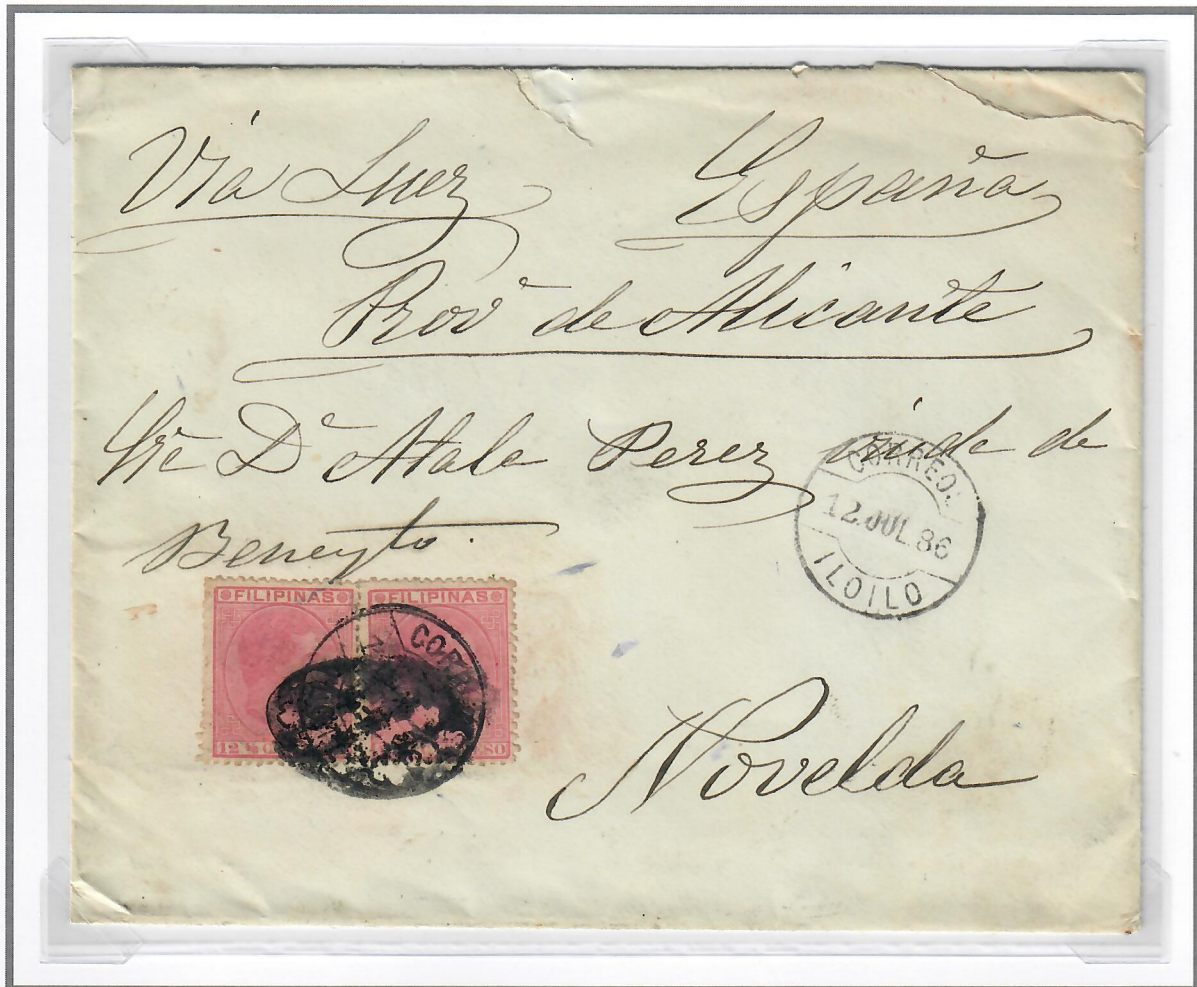 Via Suez España
Prov.ª de Alicante
Sra Dª Atala Perez viuda de
Beneyto.
CORREOS
12 JUL 86
ILOILO
FILIPINAS FILIPINAS
CORR
12
Novelda